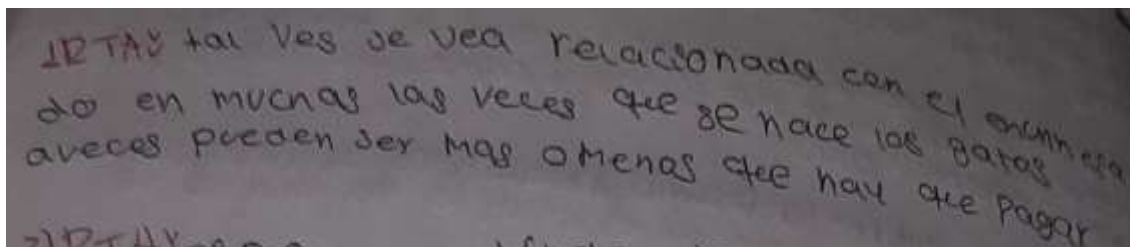 1RTAY tal ves se vea relacionada con el
do en muchas las veces que se hace los gatas
aveces pueden ser mas omenos que hay que pagar
2)RTAY